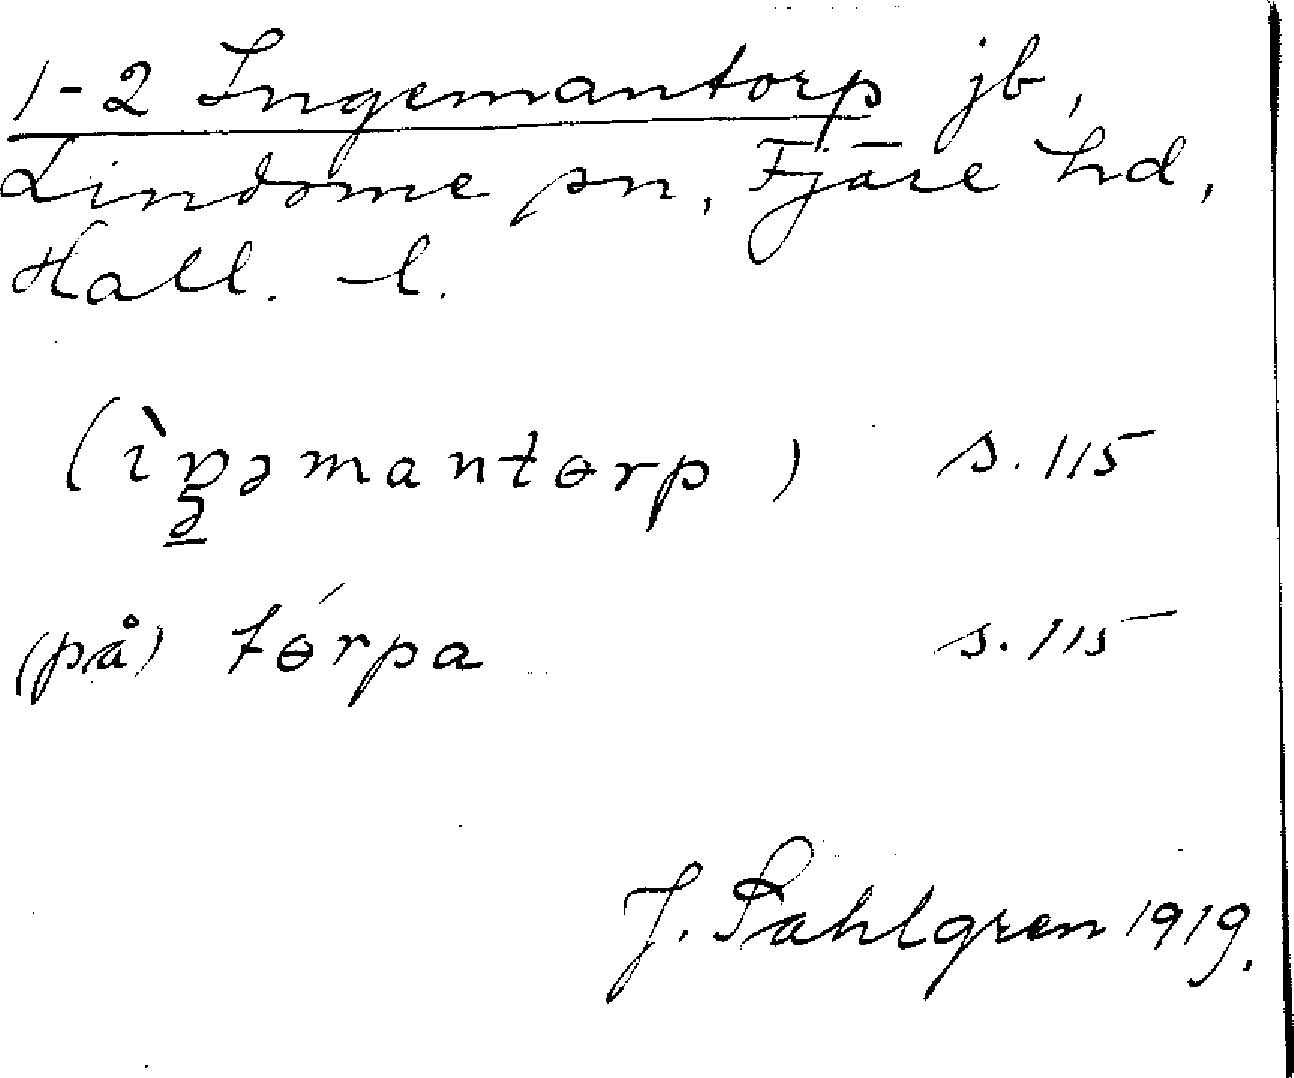 1-2 Ingemantorp jb,
Lindome sn, Fjäre hd,
Hall. l.
(ìŋəmantɵrp) s. 115
(på) tɵ́rpa s. 115
J. Sahlgren 1919.